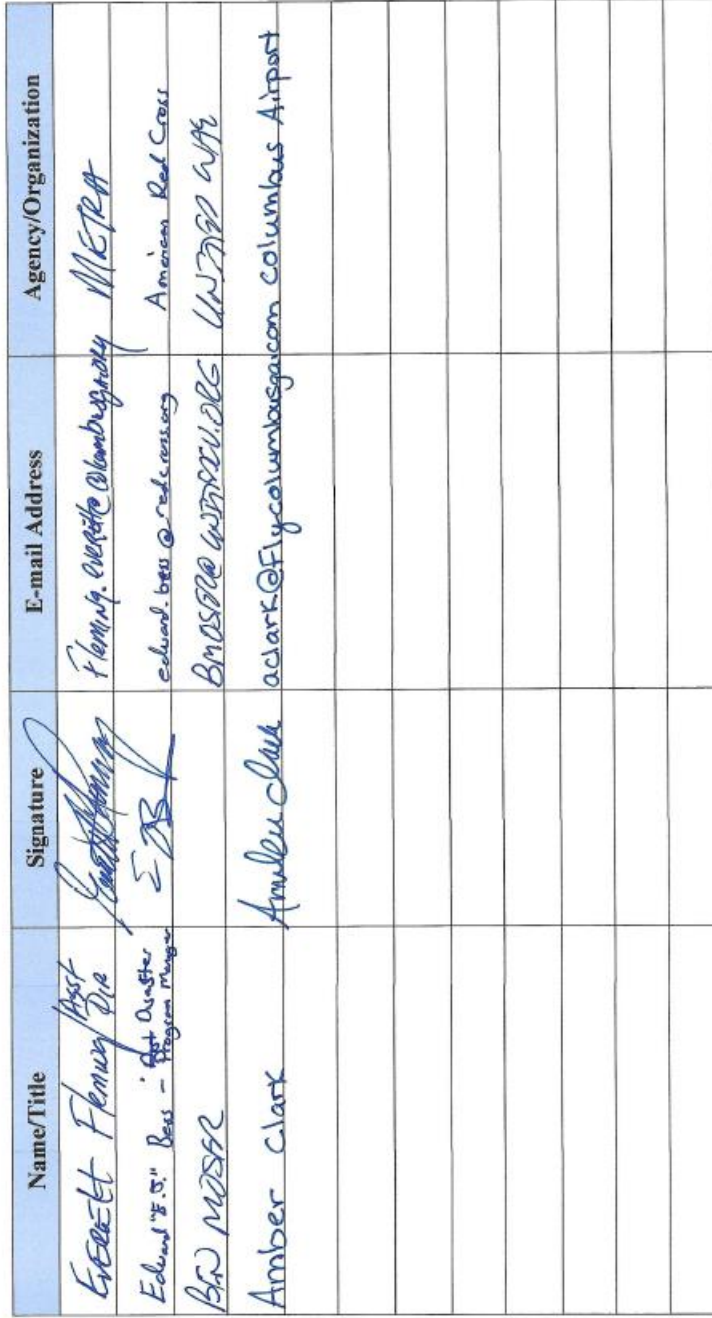 Name/Title Signature E-mail Address Agency/Organization
Everett Fleming / Asst Dir METRA
Edward "E.J." Bess - Disaster Program Manager EJB edward.bess@redcross.org American Red Cross
BEN MOSER UNITED WAY
Amber Clark Amber Clark aclark@flycolumbusga.com Columbus Airport